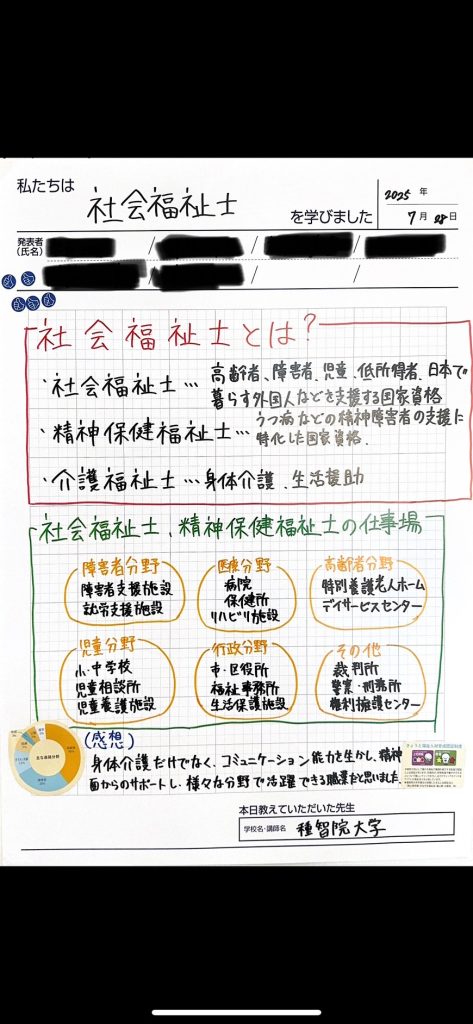 私たちは 社会福祉士 を学びました
2025年
7月28日
発表者
(氏名)
社会福祉士とは?
・社会福祉士…高齢者、障害者、児童、低所得者、日本で
暮らす外国人などを支援する国家資格
・精神保健福祉士…うつ病などの精神障害者の支援に
特化した国家資格.
・介護福祉士…身体介護、生活援助
社会福祉士、精神保健福祉士の仕事場
障害者分野
障害者支援施設
就労支援施設
医療分野
病院
保健所
リハビリ施設
高齢者分野
特別養護老人ホーム
デイサービスセンター
児童分野
小・中学校
児童相談所
児童養護施設
行政分野
市・区役所
福祉事務所
生活保護施設
その他
裁判所
警察・刑務所
権利擁護センター
(感想)
身体介護だけでなく、コミュニケーション能力を生かし、精神
面からのサポートし、様々な分野で活躍できる職業だと思いました.
本日教えていただいた先生
学校名・講師名 種智院大学